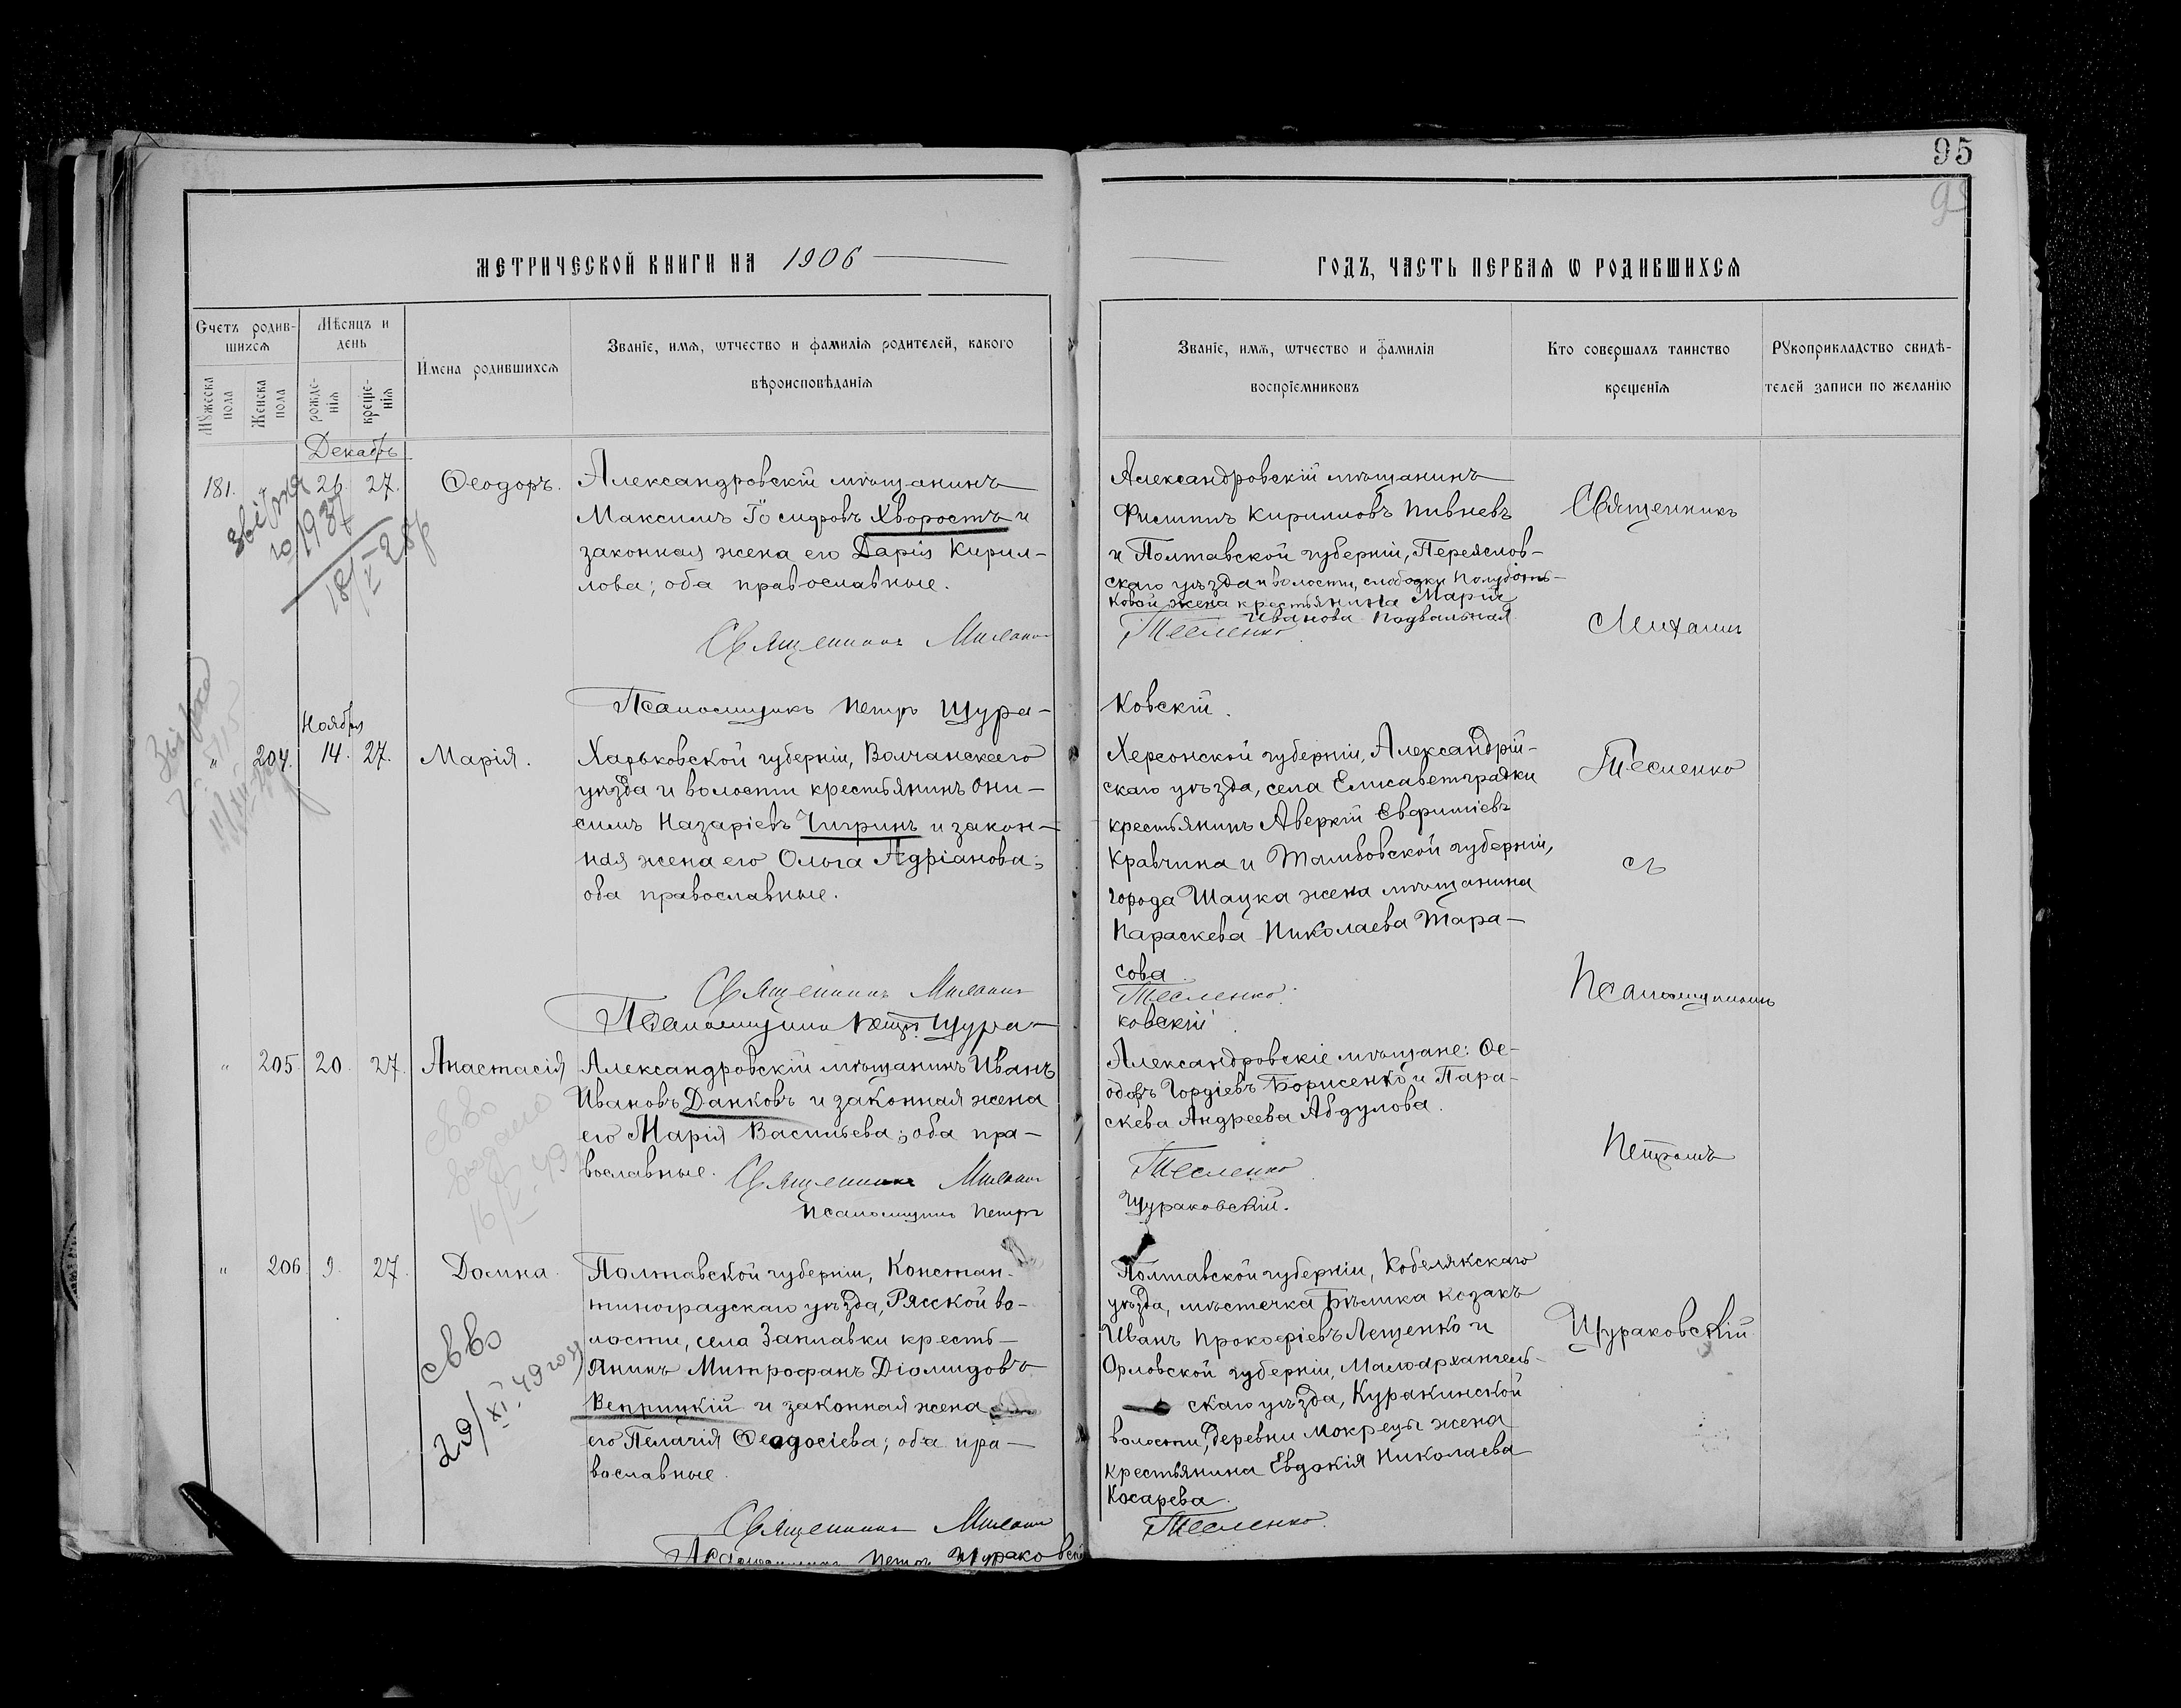 95
95
МЕТРИЧЕСКОЙ КНИГИ НА 1906
ГОДЪ, ЧАСТЬ ПЕРВАЯ Ѡ РОДИВШИХСЯ
Счетъ родив-
шихся
Мѣсяцъ и
день
Мужеска
пола
Женска
пола
рожде-
нія
креще-
нія
Имена родившихся
Званіе, имя, ѡтчество и фамилія родителей, какого
вѣроисповѣданія
Званіе, имя, ѡтчество и фамилія
воспріемниковъ
Кто совершалъ таинство
крещенія
Рукоприкладство свидѣ-
телей записи по желанію
Декабрь
181. 26. 27. Ѳеодоръ.
Александровскій мѣщанинъ
Максимъ Хворостъ и
законная жена его Дарія Кирил-
лова; оба православные.
Священникъ Михаилъ
Псаломщикъ Петръ Щура-
Александровскій мѣщанинъ
Филиппъ Кирилловъ Пивневъ
и Полтавской губерніи, Переяслов-
скаго уѣзда и волости, слободки Полубот-
ковой жена крестьянина Марія
Иванова Подвальная
Тесленко
ковскій.
Ноября
" 204. 14. 27. Марія.
Харьковской губерніи, Волчанскаго
уѣзда и волости крестьянинъ Они-
симъ Назаріевъ Чигринъ и закон-
ная жена его Ольга Адріанова;
оба православные.
Священникъ Михаилъ
Псаломщикъ Петръ Щура-
Херсонской губерніи, Александрій-
скаго уѣзда, села Елисаветградки
крестьянинъ Аверкій Евфиміевъ
Кравчина и Тамбовской губерніи,
города Шацка жена мѣщанина
Параскева Николаева Тара-
сова.
Тесленко.
ковскій.
" 205. 20. 27. Анастасія
Александровскій мѣщанинъ Иванъ
Ивановъ Данковъ и законная жена
его Марія Васильева; оба пра-
вославные. Священникъ Михаилъ
Псаломщикъ Петръ
Александровскіе мѣщане: Ѳе-
одоръ Гордіевъ Борисенко и Пара-
скева Андреева Абдулова.
Тесленко
Щураковскій.
" 206. 9. 27. Домна.
Полтавской губерніи, Констан-
тиноградскаго уѣзда, Рясской во-
лости, села Заплавки кресть-
янинъ Митрофанъ Діомидовъ
Веприцкій и законная жена
его Пелагія Ѳеодосіева; оба пра-
вославные.
Священникъ Михаилъ
Псаломщикъ Петръ Щураковскій
Полтавской губерніи, Кобелякскаго
уѣзда, мѣстечка Бѣлика козакъ
Иванъ Прокофіевъ Лещенко и
Орловской губерніи, Малоархангель-
скаго уѣзда, Куракинской
волости, деревни Мокрецы жена
крестьянина Евдокія Николаева
Косарева.
Тесленко.
Священникъ
Михаилъ
Тесленко
съ
Псаломщикомъ
Петромъ
Щураковскій
18/I 28р
свво
16/V-49
свво
29/XI-49